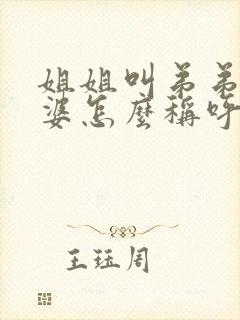 姐姐叫弟弟
婆怎麼稱呼
王珏周